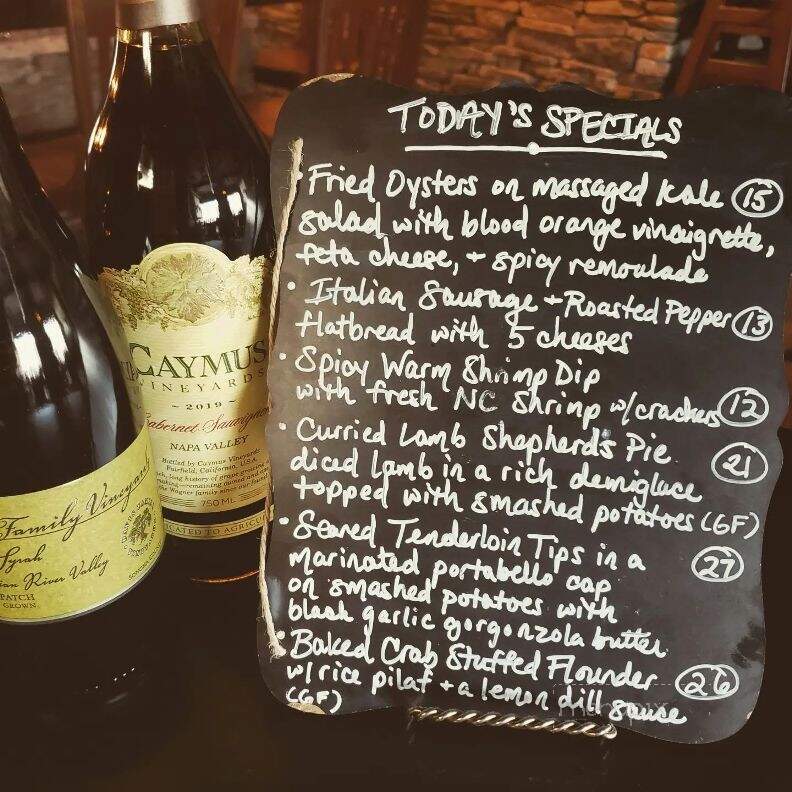 TODAY'S SPECIALS
• Fried Oysters on massaged Kale 15
salad with blood orange vinaigrette,
feta cheese, + spicy remoulade
• Italian Sausage + Roasted Pepper 13
flatbread with 5 cheeses
• Spicy Warm Shrimp Dip
with fresh NC Shrimp w/crackers 12
• Curried Lamb Shepherd's Pie 21
diced lamb in a rich demiglace
topped with smashed potatoes (GF)
• Seared Tenderloin Tips in a 27
marinated portabello cap
on smashed potatoes with
black garlic gorgonzola butter
• Baked Crab Stuffed Flounder 26
w/rice pilaf + a lemon dill sauce
(GF)
CAYMUS
VINEYARDS
~ 2019 ~
Cabernet Sauvignon
NAPA VALLEY
Bottled by Caymus Vineyards
Fairfield, California, U.S.A.
750ML
Family Vineyard
Syrah
River Valley
PATCH
GROWN